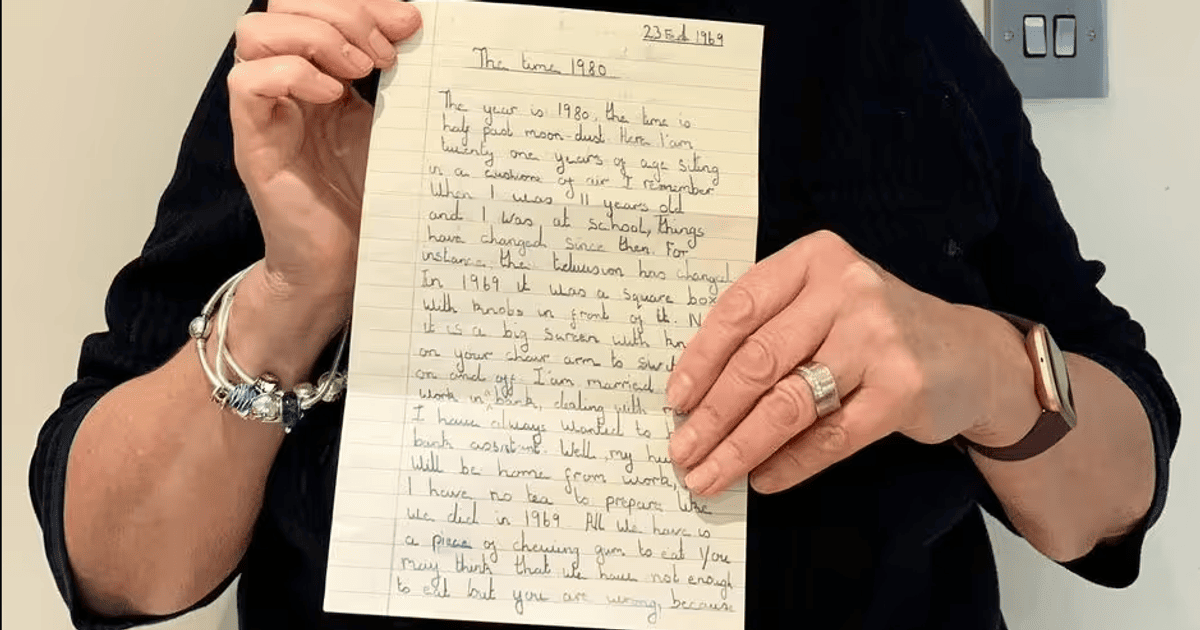 23 Feb 1969
The time 1980
The year is 1980, the time is
half past moon-dust. Here I'am
twenty one years of age siting
in a cushione of air I remember
When I was 11 years old
and I was at school, things
have changed since then. For
instance, the television has changed
In 1969 it was a square box
with knobs in front of it. N
it is a big screen with kn
on your chair arm to swit
on and off. I'am married
work in a bank, dealing with
I have always wanted to b
bank assistant. Well, my hu
will be home from work,
I have no tea to prepare like
we did in 1969. All we have is
a piece of chewing gum to eat You
may think that we have not enough
to eat but you are wrong, because